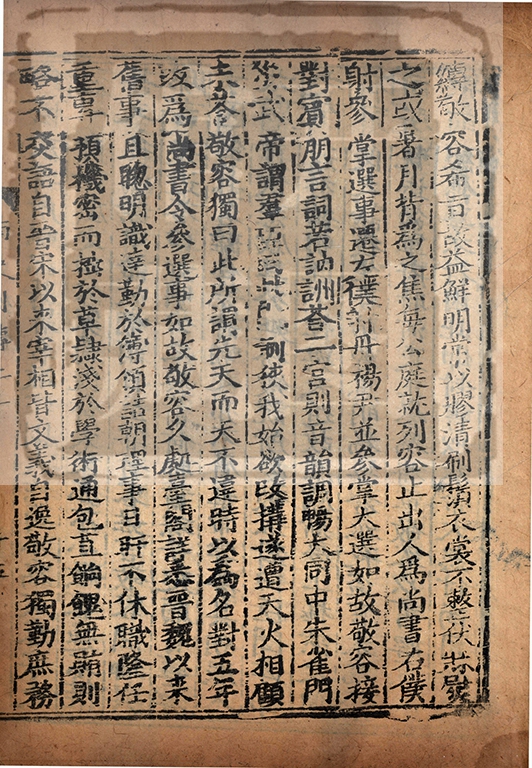 縛敬容希旨故益鮮明常以膠清刷鬢衣裳不整伏牀熨
之或暑月背為之焦每公庭就列容止出人為尚書右僕
射參掌選事遷左僕射丹楊尹並參掌大選如故敬容接
對賓朋言詞若訥訓荅二宮則音韻調暢大同中朱雀門
災武帝謂羣臣曰此門制狹我始欲改搆遂遭天火相顧
未荅敬容獨曰此所謂先天而天不違時以為名對五年
改為尚書令參選事如故敬容久處臺閣詳悉晉魏以來
舊事且聰明識達勤於簿領詰朝理事日旰不休職隆任
重專預機密而拙於草隸淺於學術通包苴餉餽無賄則
略不交語自晉宋以來宰相皆文義自逸敬容獨勤庶務